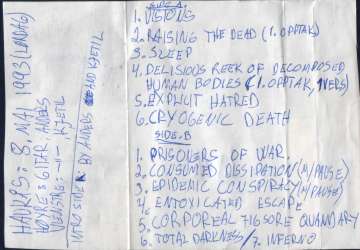 SIDE A
1. VISIONS
2. RAISING THE DEAD (1. OPPTAK)
3. SLEEP
4. DELISIOUS REEK OF DECOMPOSED
HUMAN BODIES (1. OPPTAK, 1 VERS)
5. EXPLICIT HATRED
6. CRYOGENIC DEATH
SIDE. B
1. PRISONERS OF WAR.
2. CONSUMED DISSIPATION (M/PAUSE)
3. EPIDEMIC CONSPIRACY (M/PAUSE)
4. ENTOXICATED ESCAPE
5. CORPOREAL JIGSORE QUANDARY
6. TOTAL DARKNESS / 7. INFERNO
3. MAI 1993 (LØRDAG)
HØYRE GITAR: ANDERS
VENSTRE: - " - KJETIL
INTRO SIDE BY ANDERS AND KJETIL